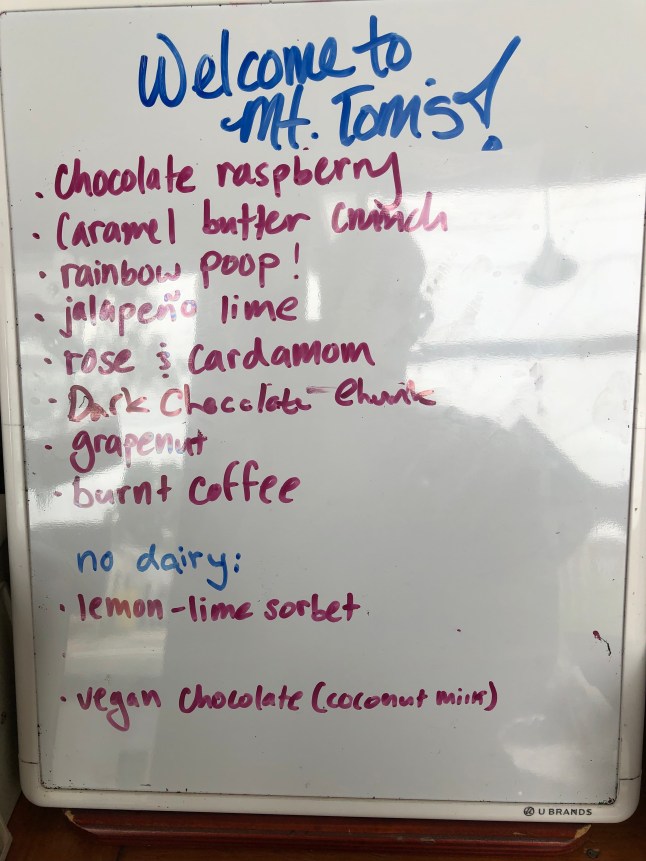 Welcome to
Mt. Tom's!
• Chocolate raspberry
• Caramel butter crunch
• rainbow poop!
• jalapeño lime
• rose & Cardamom
• Dark Chocolate Chunk
• grapenut
• burnt coffee
no dairy:
• lemon-lime sorbet
• vegan chocolate (coconut milk)
U BRANDS